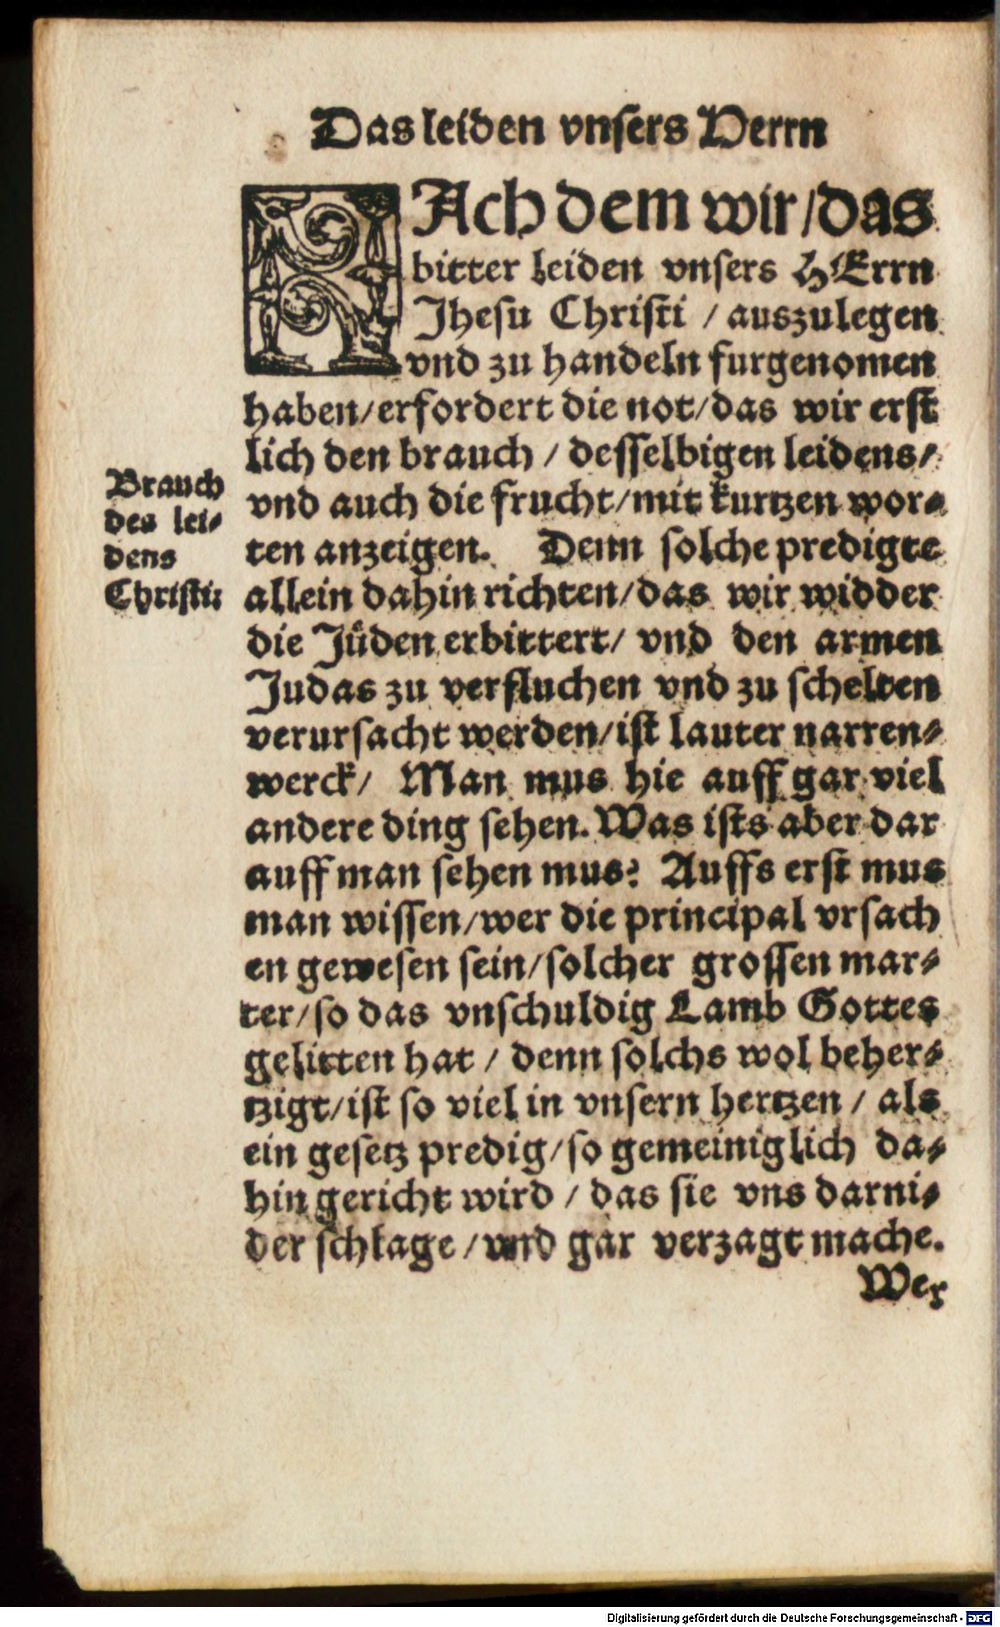 Das leiden vnsers Herrn
NAch dem wir/das
bitter leiden vnsers HErrn
Jhesu Christi / auszulegen
vnd zu handeln furgenomen
haben/erfordert die not/das wir erst
lich den brauch / desselbigen leidens/
vnd auch die frucht/mit kurtzen wor-
ten anzeigen. Denn solche predigte
allein dahin richten/das wir widder
die Jüden erbittert/ vnd den armen
Judas zu verfluchen vnd zu schelten
verursacht werden/ist lauter narren-
werck/ Man mus hie auff gar viel
andere ding sehen. Was ists aber dar
auff man sehen mus? Auffs erst mus
man wissen/wer die principal vrsach
en gewesen sein/solcher grossen mar-
ter/so das vnschuldig Lamb Gottes
gelitten hat / denn solchs wol beher-
tzigt/ist so viel in vnsern hertzen / als
ein gesetz predig/so gemeiniglich da-
hin gericht wird / das sie vns darni-
der schlage/vnd gar verzagt mache.
Wer
Brauch
des lei-
dens
Christi:
Digitalisierung gefördert durch die Deutsche Forschungsgemeinschaft - DFG